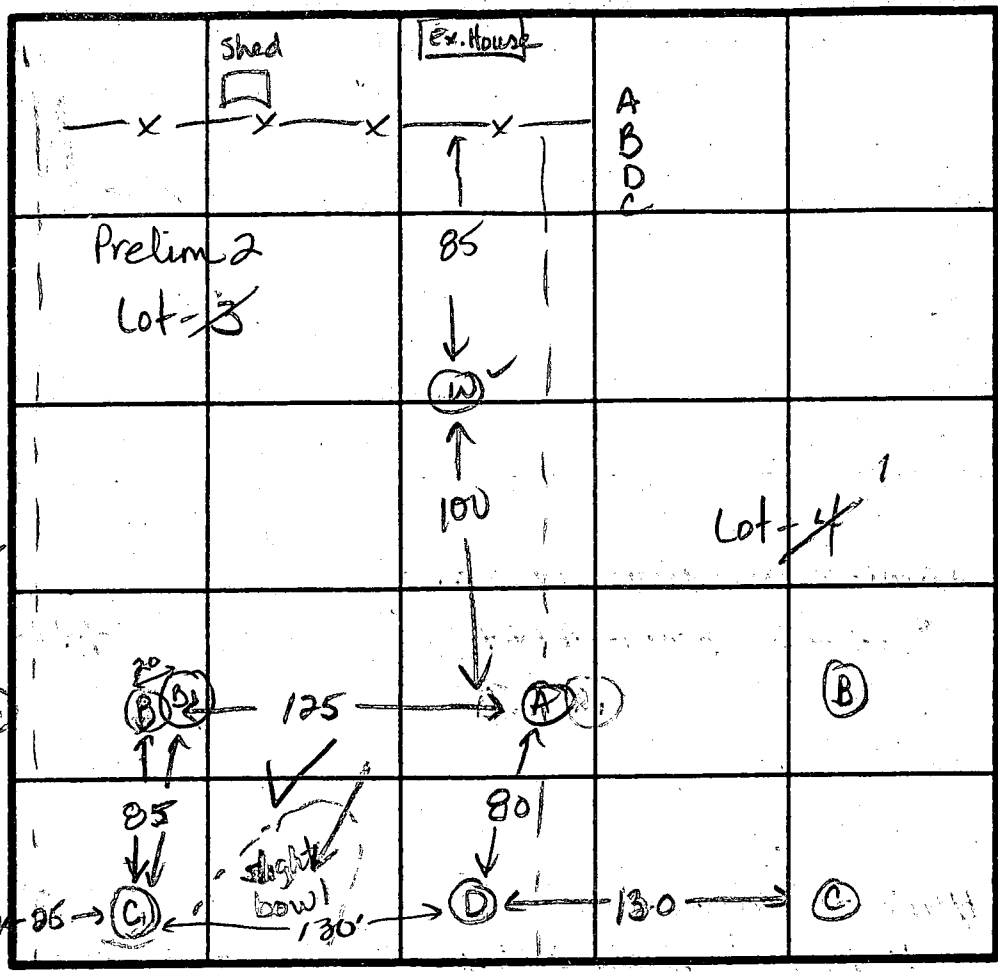 Shed
Ex. House
x x x x
A
B
D
C
Prelim 2
85
Lot - 3
W
100
1
Lot - 4
20
B B1
125
A
B
85
80
slight
bowl
C1
130'
D
130
C